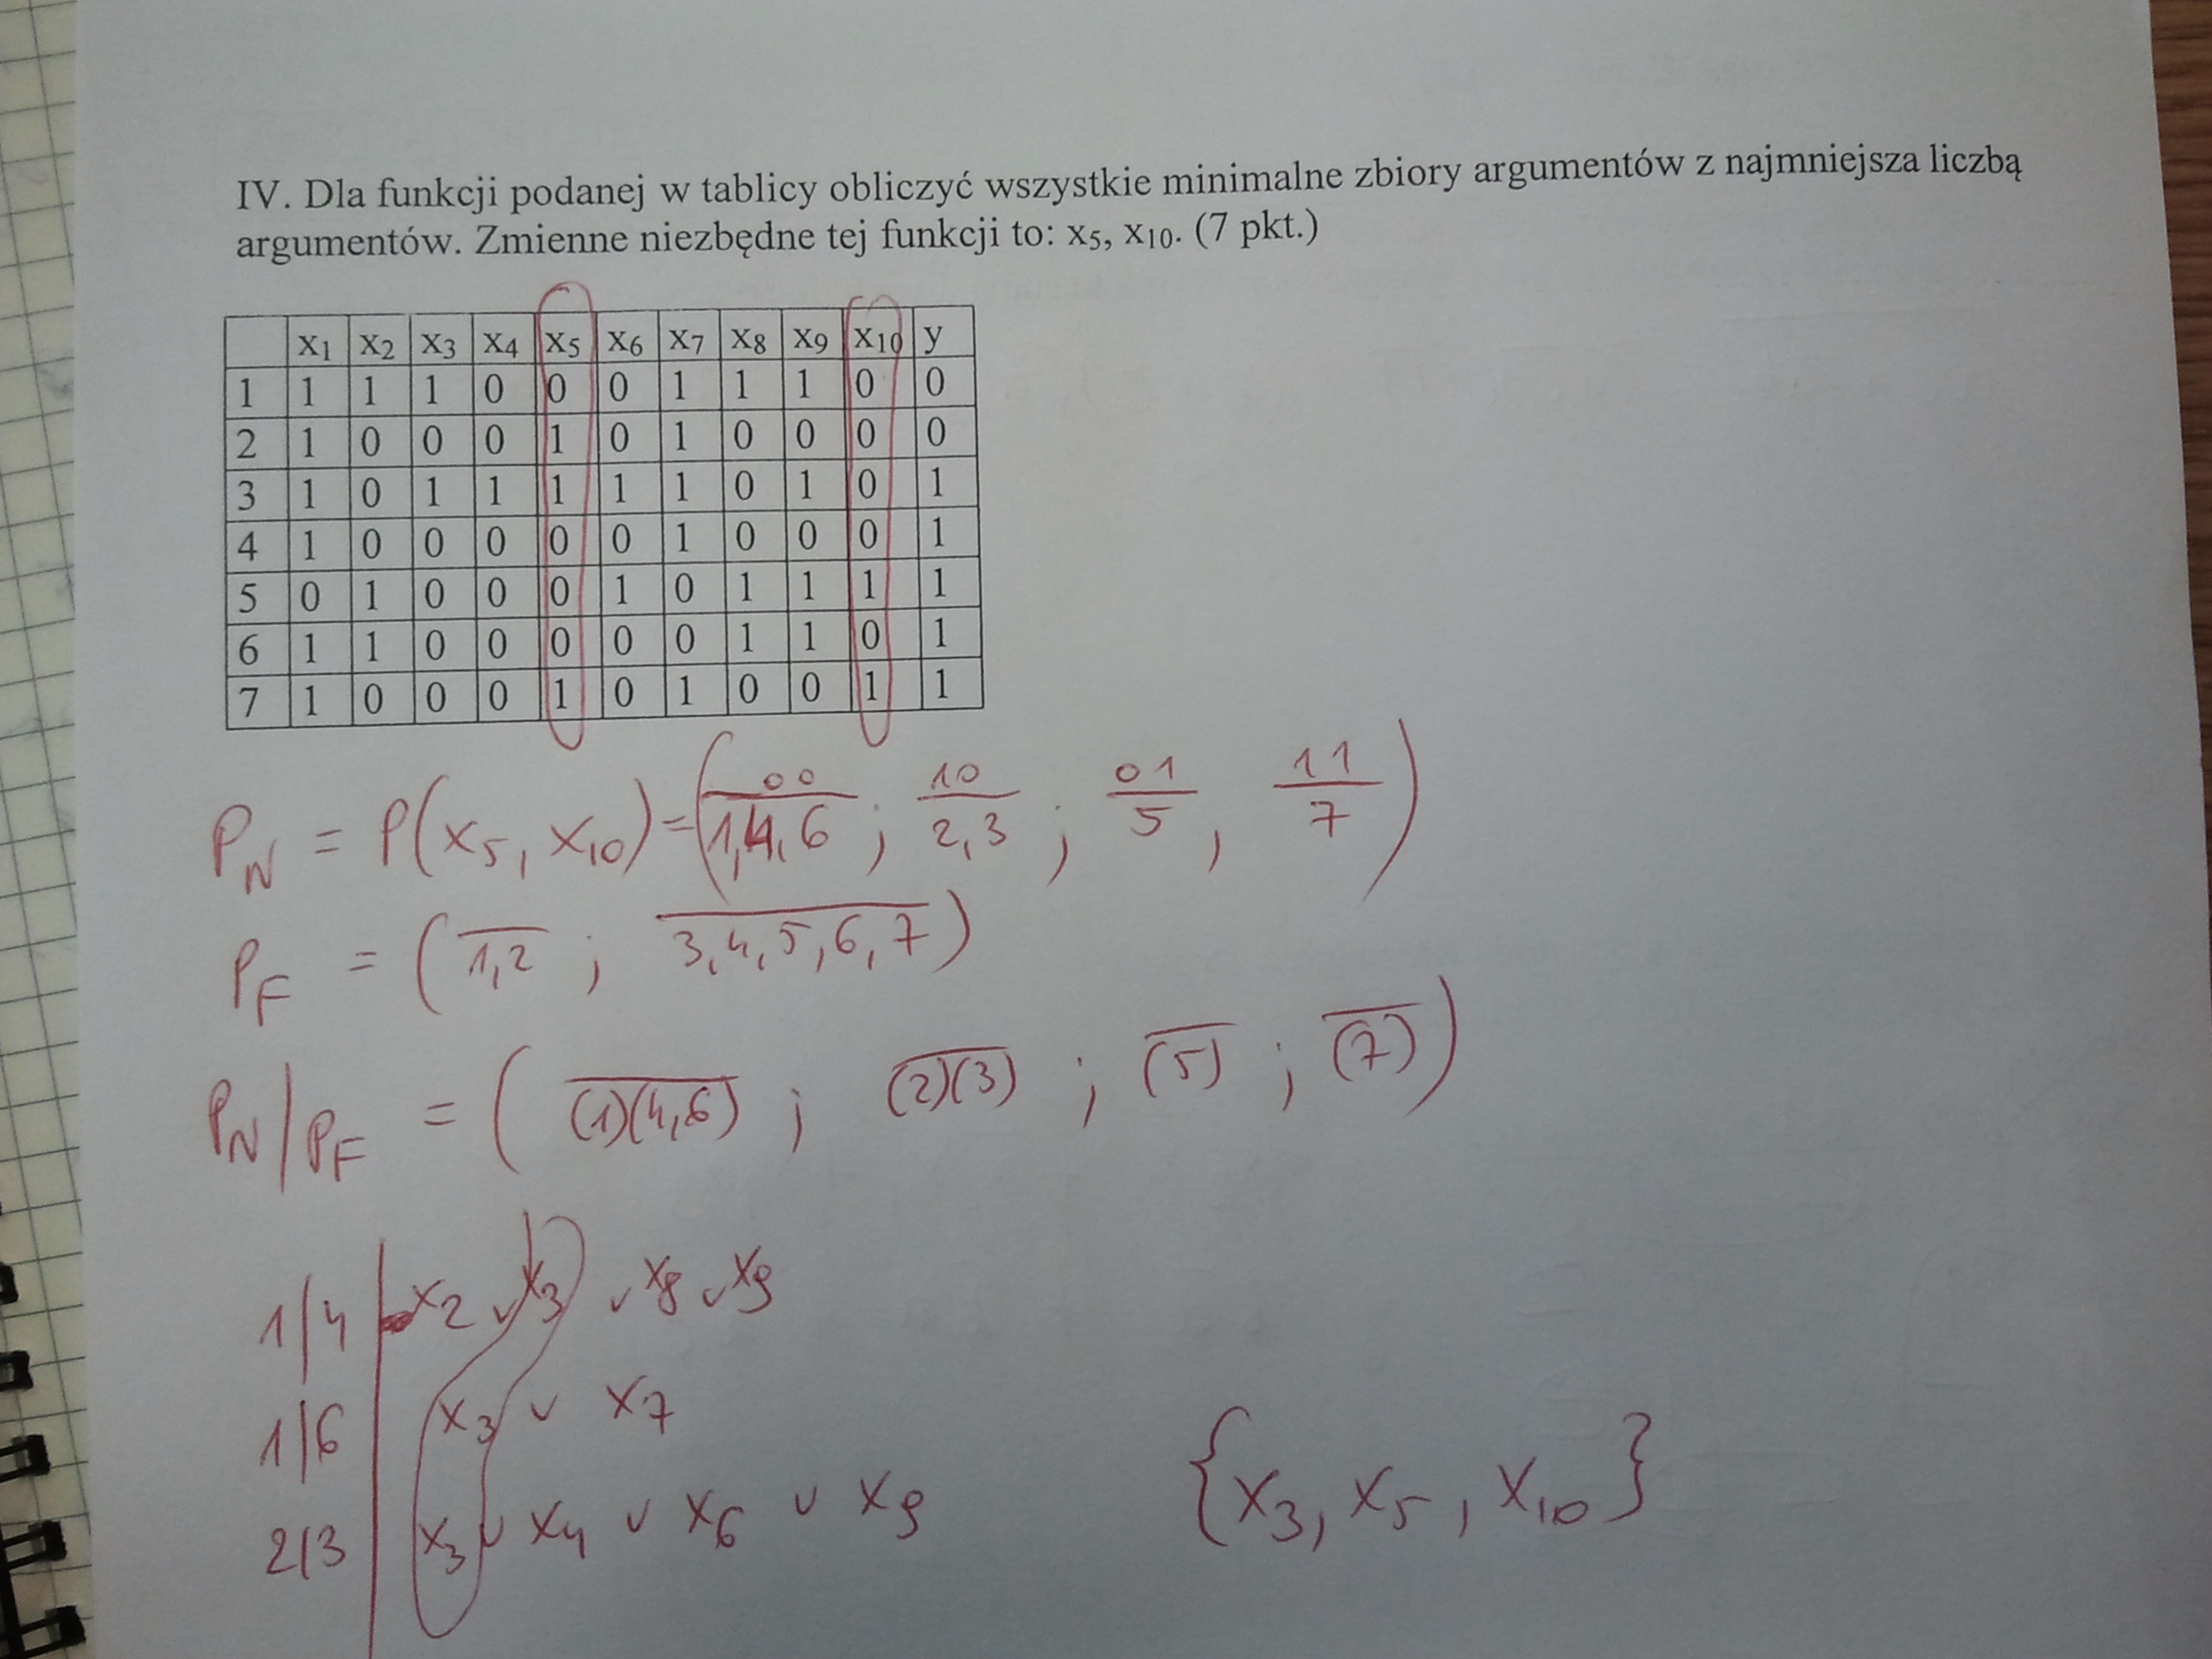 IV. Dla funkcji podanej w tablicy obliczyć wszystkie minimalne zbiory argumentów z najmniejsza liczbą
argumentów. Zmienne niezbędne tej funkcji to: x5, x10. (7 pkt.)
x1 x2 x3 x4 x5 x6 x7 x8 x9 x10 y
1 1 1 1 0 0 0 1 1 1 0 0
2 1 0 0 0 1 0 1 0 0 0 0
3 1 0 1 1 1 1 1 0 1 0 1
4 1 0 0 0 0 0 1 0 0 0 1
5 0 1 0 0 0 1 0 1 1 1 1
6 1 1 0 0 0 0 0 1 1 0 1
7 1 0 0 0 1 0 1 0 0 1 1
00 10 01 11
PN = P(x5, x10) = (1,4,6 ; 2,3 ; 5 , 7)
PF = (1,2 ; 3,4,5,6,7)
PN|PF = ((1)(4,6) ; (2)(3) ; (5) ; (7))
1|4 x2 v x3 v x8 v x9
1|6 x3 v x7
2|3 x3 v x4 v x6 v x9
{x3, x5, x10}